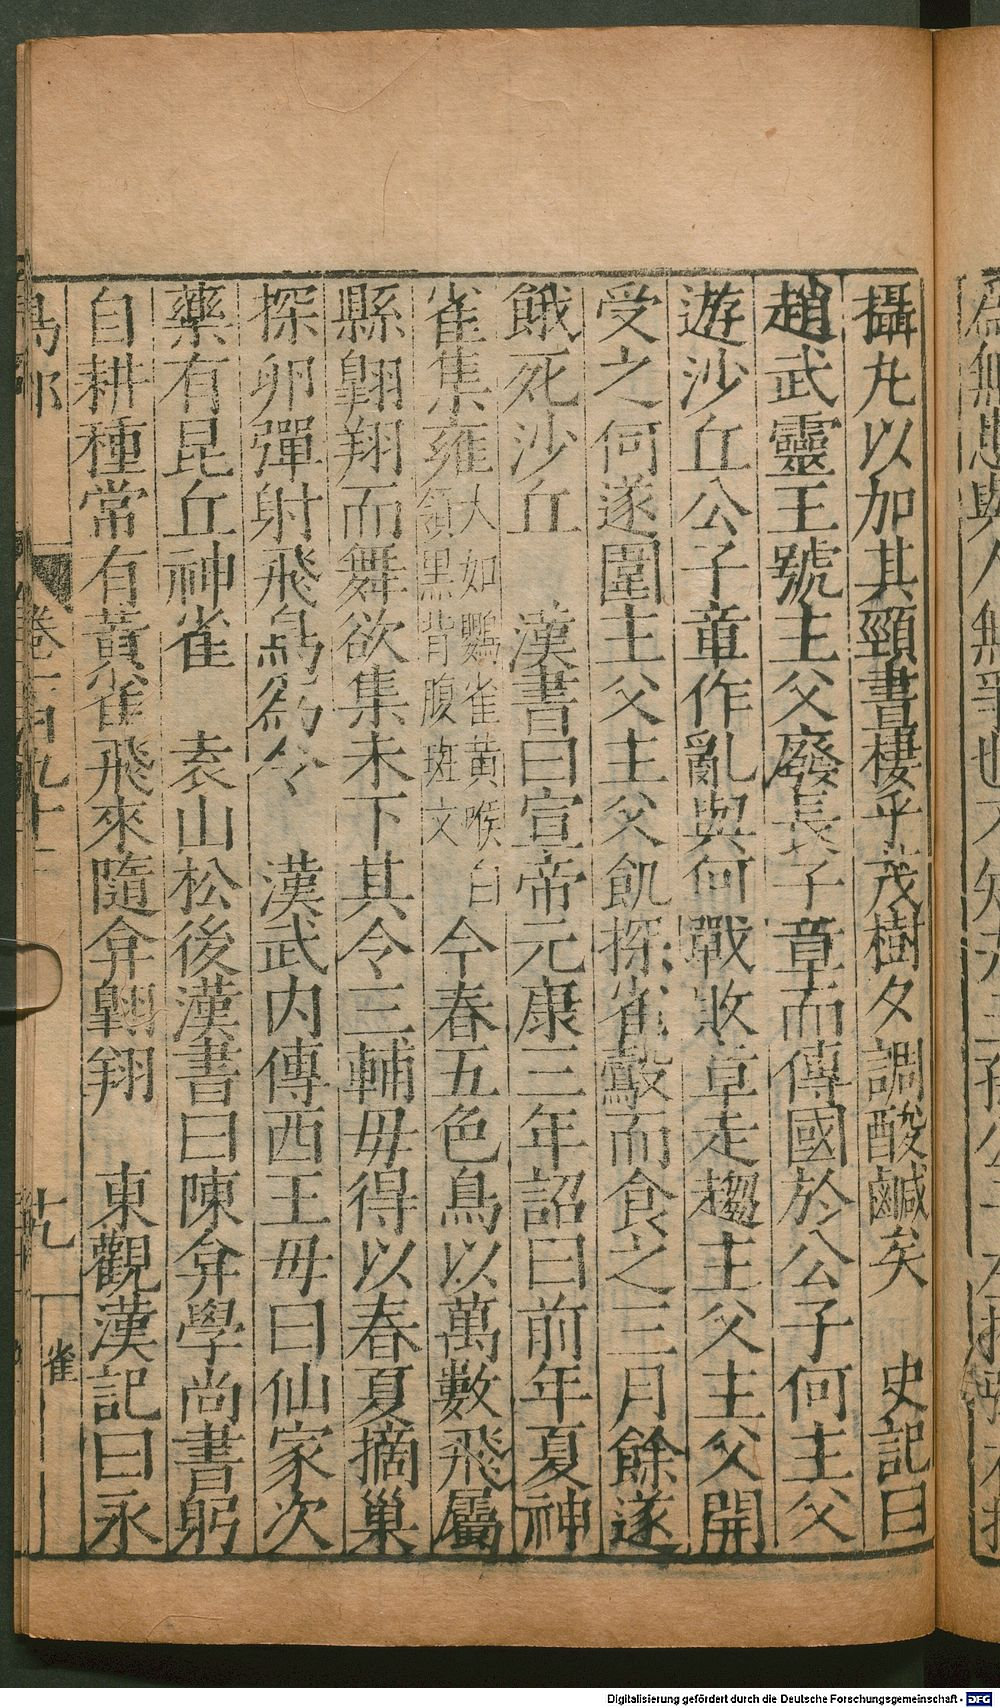 攝丸以加其頸晝棲乎茂樹夕調酸鹹矣　史記曰
趙武靈王號主父廢長子章而傳國於公子何主父
遊沙丘公子章作亂與何戰敗章走趨主父主父開
受之何遂圍主父主父飢探雀鷇而食之三月餘遂
餓死沙丘　漢書曰宣帝元康三年詔曰前年夏神
雀集雍大如鸚雀黃喉白領黑背腹斑文今春五色鳥以萬數飛屬
縣翺翔而舞欲集未下其令三輔毋得以春夏摘巢
探卵彈射飛鳥爲令　漢武内傳西王母曰仙家次
藥有昆丘神雀　袁山松後漢書曰陳弇學尚書躬
自耕種常有黃雀飛來隨弇翺翔　東觀漢記曰永
鳥部 卷 九十二 九 雀
Digitalisierung gefördert durch die Deutsche Forschungsgemeinschaft - DFG